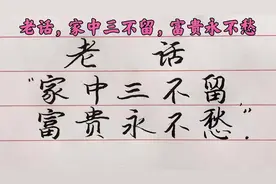 老话，家中三不留，富贵永不愁
老话
“家中三不留，
富贵永不愁”.